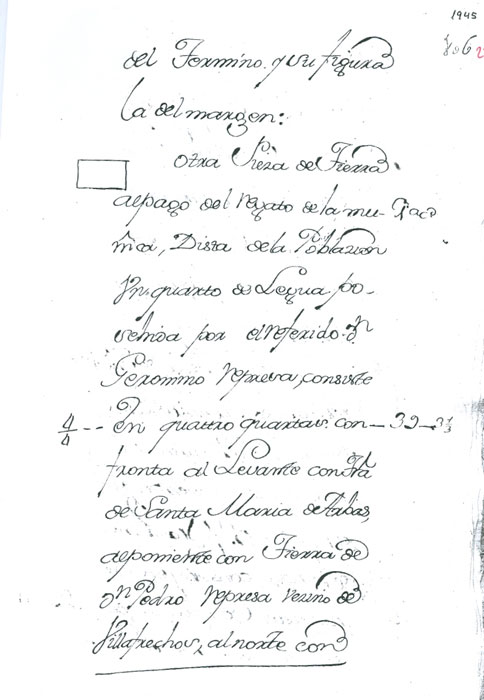 1945
del Termino. y su figura
la del margen:
Otra Pieza de Tierra
al pago del regato de la mu-
Dista de la Poblazion
Un quarto de Legua po-
por el referido Dn
Geronimo represa, consiste
4/4 -- En quattro quartas con-
fronta al Levante con trra
de Santa Maria de Arbas,
al poniente con Tierra de
Dn Pedro represa vezino de
Villafrechos, al norte con